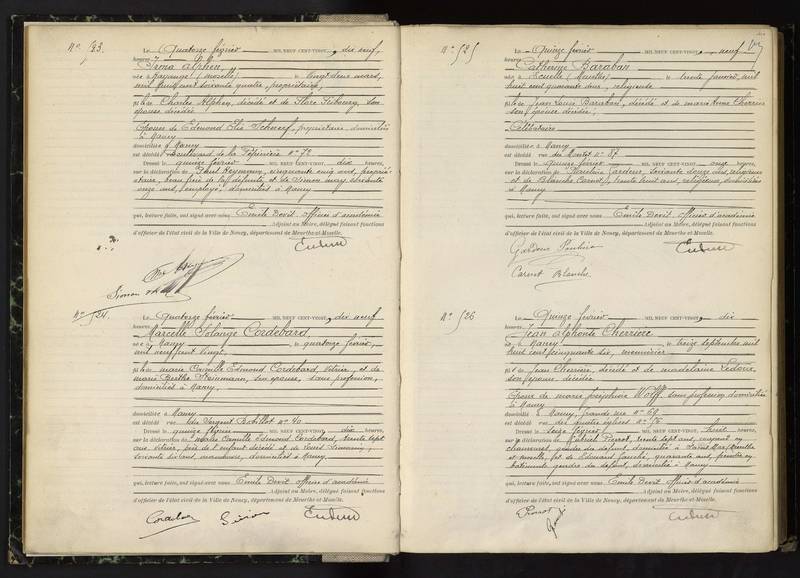 N° 523.
Le Quatorze février MIL NEUF CENT-VINGT, dix neuf
heures
Irma Alphen,
née à Hayange (Moselle) le vingt deux mars,
mil huit cent soixante quatre, propriétaire,
fille de Charles Alphen, décédé et de Flore Fribourg, son
épouse décédée,
Epouse de Edmond Elie Schwerf, propriétaire, domiciliée
à Nancy
domiciliée à Nancy
est décédée Boulevard de la Pépinière n° 72
Dressé le quinze février MIL NEUF CENT-VINGT, dix heures,
sur la déclaration de Paul Reymann, cinquante cinq ans, propriétaire,
et de Simon May soixante
onze ans, employé, domiciliés à Nancy
qui, lecture faite, ont signé avec nous Emile Devit officier d'académie
Adjoint au Maire, délégué faisant fonctions
d'officier de l'état civil de la Ville de Nancy, département de Meurthe-et-Moselle.
N° 524.
Le Quatorze février MIL NEUF CENT-VINGT, dix neuf
heures
Marcelle Solange Cordebard
née à Nancy le quatorze février,
mil neuf cent vingt,
fille de Marie Camille Edmond Cordebard, vitrier, et de
Marie Berthe Neumann, son épouse, sans profession,
domiciliés à Nancy.
domiciliée à Nancy
est décédée rue du Sergent Bobillot n° 40
Dressé le quinze février MIL NEUF CENT-VINGT, dix heures,
sur la déclaration de Marie Camille Edmond Cordebard, trente sept
ans vitrier, père de l'enfant décédé et de Louis Simonin,
soixante dix ans, manœuvre, domiciliés à Nancy
qui, lecture faite, ont signé avec nous Emile Devit officier d'académie
Adjoint au Maire, délégué faisant fonctions
d'officier de l'état civil de la Ville de Nancy, département de Meurthe-et-Moselle.
N° 525
Le Quinze février MIL NEUF CENT-VINGT, neuf
heures
Catherine Baraban
née à (Moselle) le trente janvier, mil
huit cent quarante deux, religieuse
fille de Jean Louis Baraban, décédé et de Marie Anne Cherrier
son épouse décédée,
Célibataire
domiciliée à Nancy
est décédée rue du Montet n° 87
Dressé le quinze février MIL NEUF CENT-VINGT, onze heures,
sur la déclaration de Pauline Gardeur, soixante douze ans, religieuse
et de Blanche Carnot, trente huit ans, religieuse, domiciliées
à Nancy
qui, lecture faite, ont signé avec nous Emile Devit officier d'académie
Adjoint au Maire, délégué faisant fonctions
d'officier de l'état civil de la Ville de Nancy, département de Meurthe-et-Moselle.
Gardeur Pauline
Carnot Blanche
N° 526
Le Quinze février MIL NEUF CENT-VINGT, dix
heures
Jean Alphonse Cherrière
né à Nancy le treize septembre mil
huit cent cinquante six, menuisier
fils de Jean Cherrière, décédé et de Madelaine Ledoux,
son épouse décédée
Epoux de Marie Joséphine Wolff sans profession domiciliée
à Nancy
domicilié à Nancy, grande rue n° 69
est décédé rue des quatre églises n°
Dressé le seize février MIL NEUF CENT-VINGT, huit heures,
sur la déclaration de Pierrot, trente sept ans,
gendre du défunt domicilié à
et Moselle, et de Edouard quarante ans, peintre en
bâtiments gendre du défunt, domicilié à Nancy
qui, lecture faite, ont signé avec nous Emile Devit officier d'académie
Adjoint au Maire, délégué faisant fonctions
d'officier de l'état civil de la Ville de Nancy, département de Meurthe-et-Moselle.
Pierrot